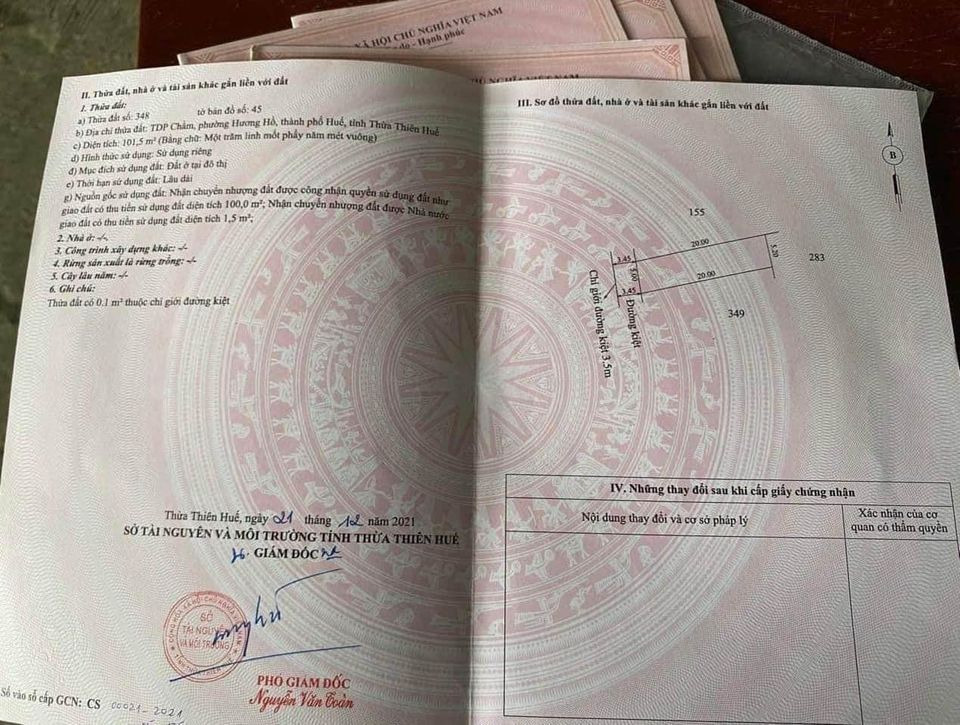 XÃ HỘI CHỦ NGHĨA VIỆT NAM
do - Hạnh phúc
CHỦ NGHĨA VIỆT NAM
II. Thửa đất, nhà ở và tài sản khác gắn liền với đất
1. Thửa đất:
a) Thửa đất số: 348 tờ bản đồ số: 45
b) Địa chỉ thửa đất: TDP Chầm, phường Hương Hồ, thành phố Huế, tỉnh Thừa Thiên Huế
c) Diện tích: 101,5 m² (Bằng chữ: Một trăm linh một phẩy năm mét vuông)
d) Hình thức sử dụng: Sử dụng riêng
đ) Mục đích sử dụng đất: Đất ở tại đô thị
e) Thời hạn sử dụng đất: Lâu dài
g) Nguồn gốc sử dụng đất: Nhận chuyển nhượng đất được công nhận quyền sử dụng đất như
giao đất có thu tiền sử dụng đất diện tích 100,0 m²; Nhận chuyển nhượng đất được Nhà nước
giao đất có thu tiền sử dụng đất diện tích 1,5 m²;
2. Nhà ở: -/-.
3. Công trình xây dựng khác: -/-
4. Rừng sản xuất là rừng trồng: -/-
5. Cây lâu năm: -/-
6. Ghi chú:
Thửa đất có 0.1 m² thuộc chỉ giới đường kiệt
Thừa Thiên Huế, ngày 21 tháng 12 năm 2021
SỞ TÀI NGUYÊN VÀ MÔI TRƯỜNG TỈNH THỪA THIÊN HUẾ
GIÁM ĐỐC
CỘNG HÒA XÃ HỘI CHỦ NGHĨA VIỆT NAM
SỞ
TÀI NGUYÊN
VÀ MÔI TRƯỜNG
PHÓ GIÁM ĐỐC
Nguyễn Văn Toàn
Số vào sổ cấp GCN: CS 00021-2021
III. Sơ đồ thửa đất, nhà ở và tài sản khác gắn liền với đất
B
155
20.00
5.20
283
3.45
5.00
20.00
3.45
349
Đường kiệt
Chỉ giới đường kiệt 3.5m
IV. Những thay đổi sau khi cấp giấy chứng nhận
Nội dung thay đổi và cơ sở pháp lý
Xác nhận của cơ
quan có thẩm quyền